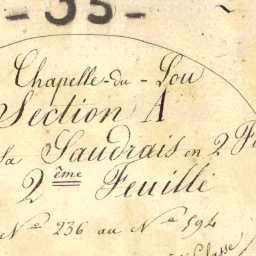 - 35 -
Chapelle-du-Lou
Section A
Saudrais en 2 F
2ème Feuille
Nos 236 au No 594
Classe